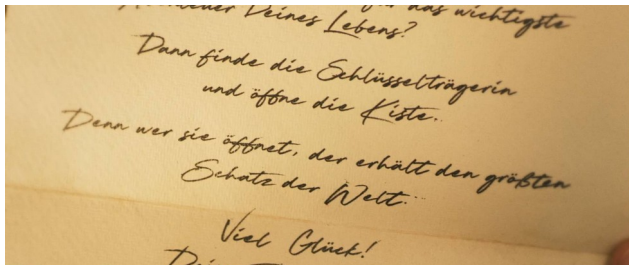 das wichtigste
Deines Lebens?
Dann finde die Schlüsselträgerin
und öffne die Kiste.
Denn wer sie öffnet, der erhält den größten
Schatz der Welt.
Viel Glück!